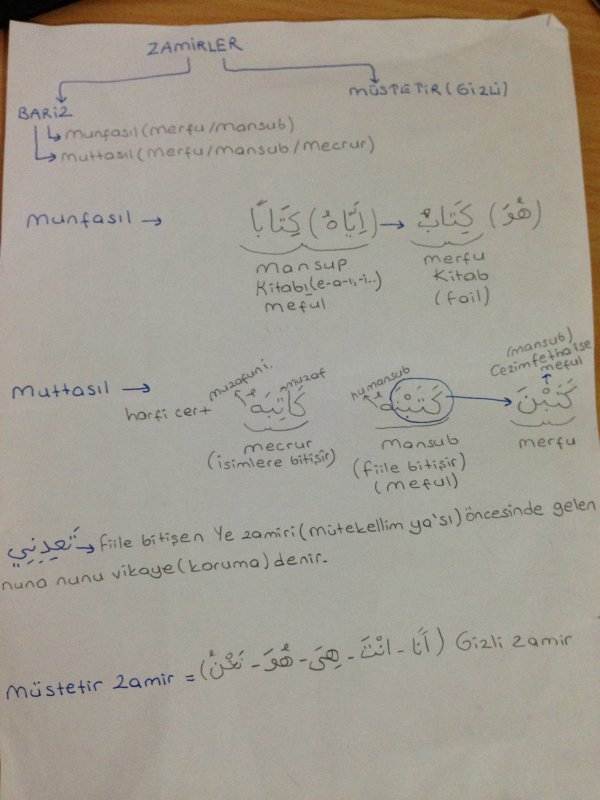 ZAMİRLER
BARİZ
MÜSTETİR (GİZLİ)
munfasıl (merfu/mansub)
muttasıl (merfu/mansub/mecrur)
Munfasıl →
(هُوَ) كِتَابٌ ← (اِيَّاهُ) كِتَابًا
mansup
merfu
Kitabı (e-a-ı,-i..)
Kitab
meful
(fail)
(mansub)
Cezimfetha ise
meful
Muttasıl →
harfi cer+
muzaf
كَاتِبه
hu mansub
كَتَبْنَهُ
كَتَبْنَ
mecrur
mansub
merfu
(isimlere bitişir)
(fiile bitişir)
(meful)
تَعِدِنِي → fiile bitişen Ye zamiri (mütekellim ya'sı) öncesinde gelen
nuna nunu vikaye (koruma) denir.
müstetir zamir = (اَنَا - اَنْتَ - هِيَ - هُوَ - نَحْنُ) Gizli zamir